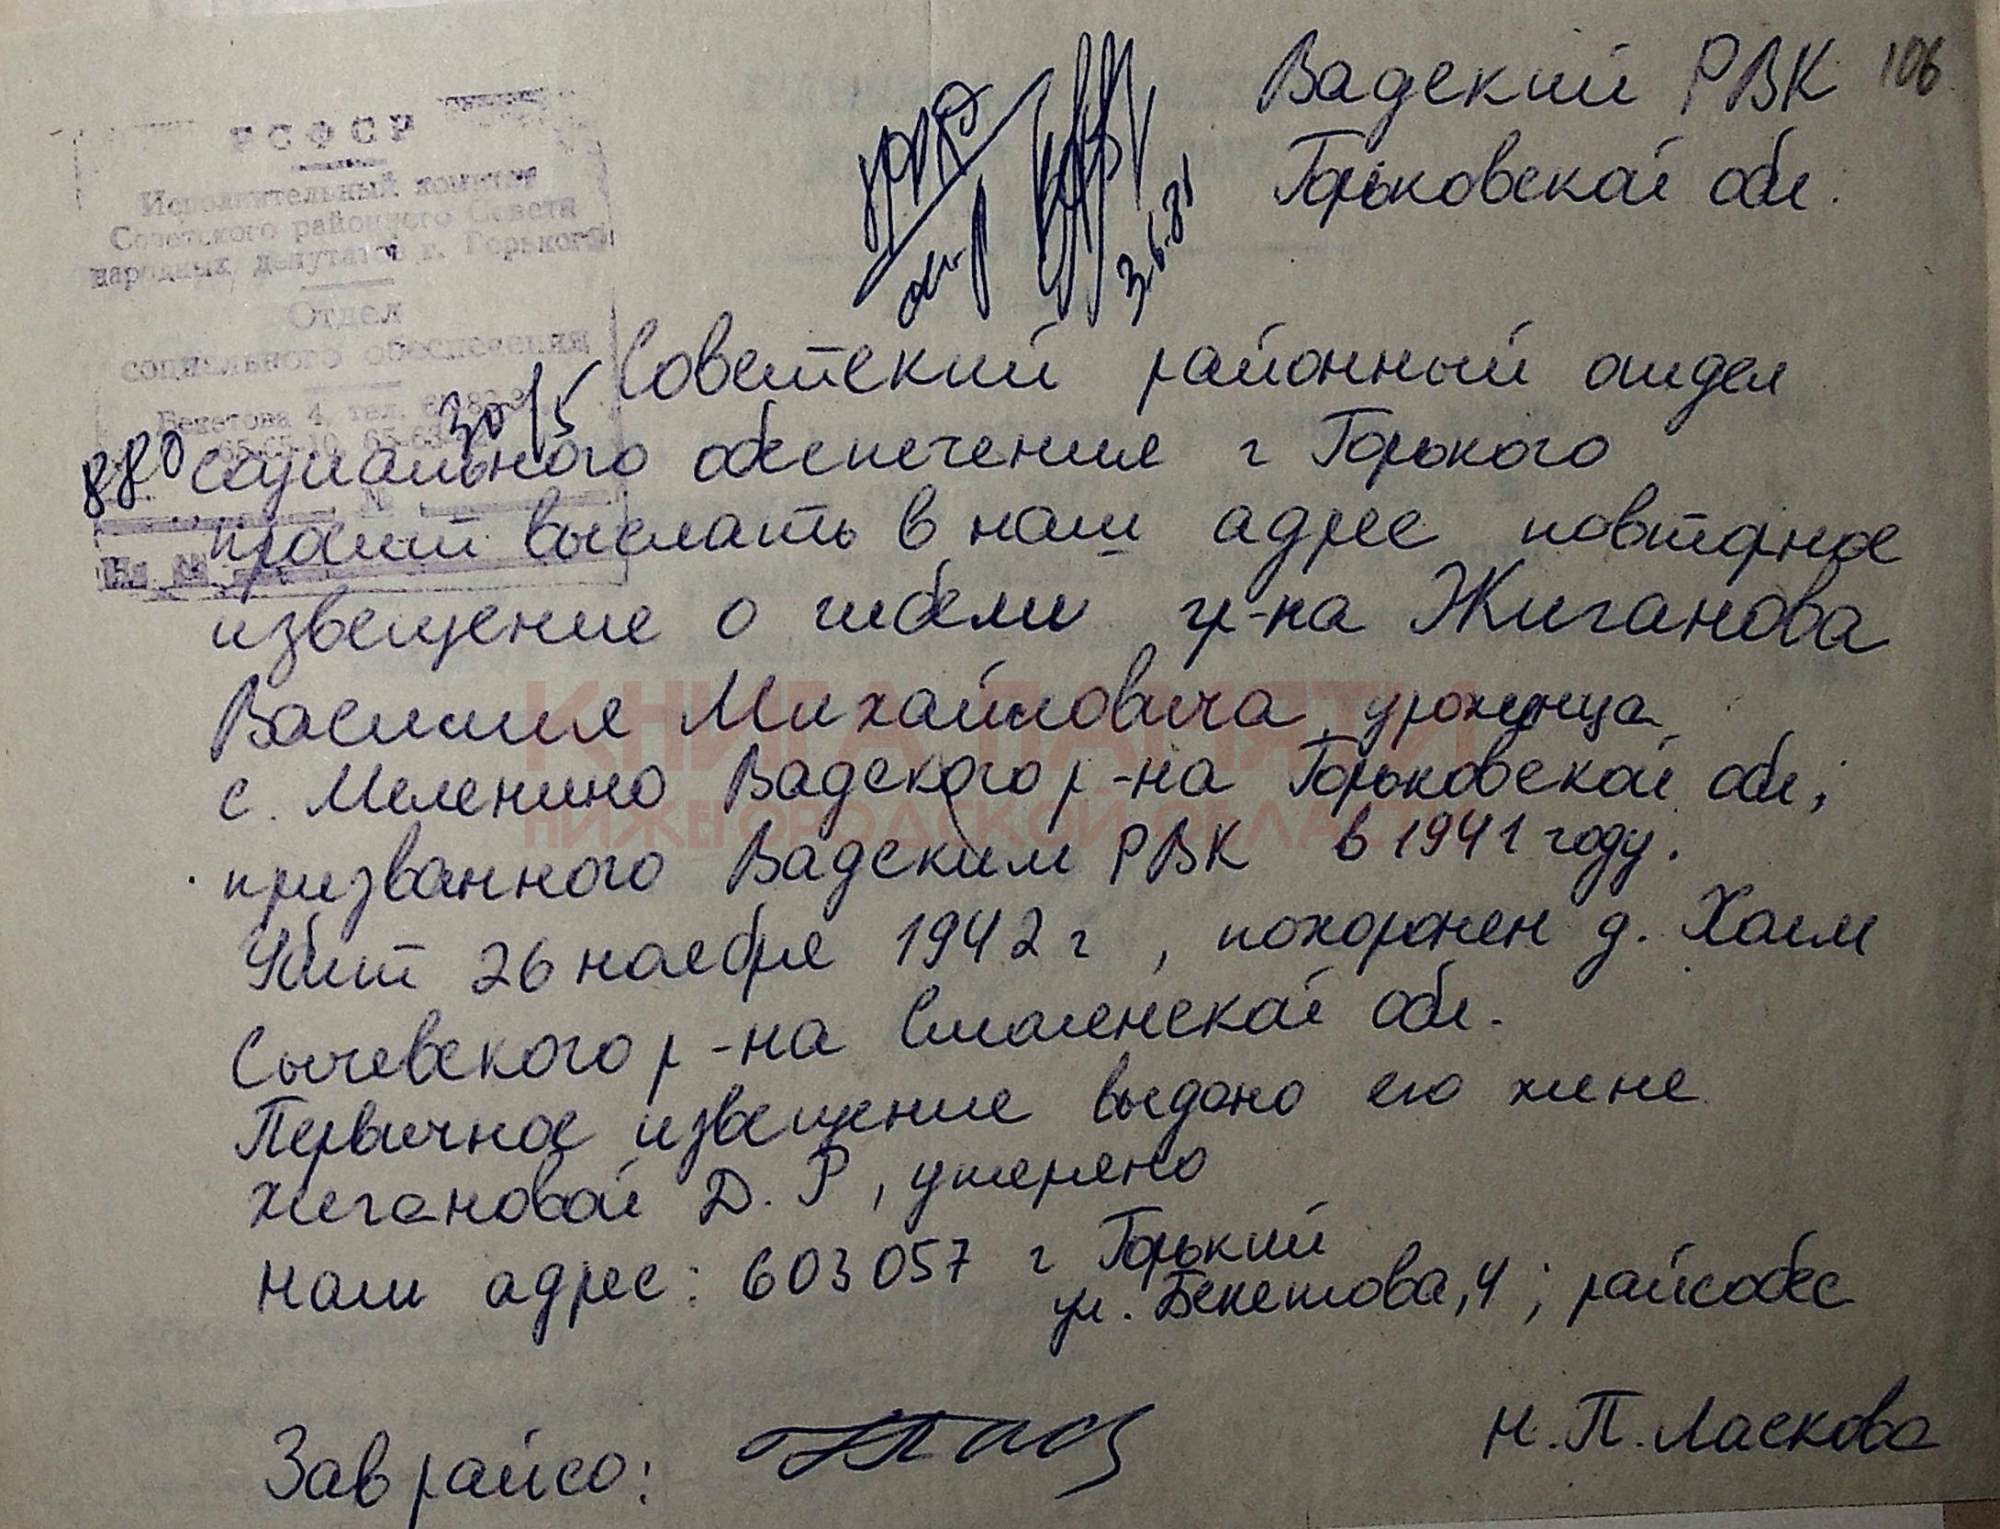 Вадский РВК 106
Горьковской обл.
3.6.81
РСФСР
Исполнительный комитет
Советского районного Совета
народных депутатов г. Горького
Отдел
социального обеспечения
Бекетова 4, тел.
65-65-10, 65-63
880 30/5
На №
Советский районный отдел
социального обеспечения г Горького
просит выслать в наш адрес повторное
извещение о гибели гр-на Жиганова
Василия Михайловича, уроженца
с. Меленино Вадского р-на Горьковской обл;
призванного Вадским РВК в 1941 году.
Убит 26 ноября 1942 г, похоронен д. Холм
Сычевского р-на Смоленской обл.
Первичное извещение выдано его жене
Жигановой Д. Р, утеряно
Наш адрес: 603057 г Горький
ул. Бекетова, 4; райсобес
Зав райсо: Н. П. Ласкова
КНИГА ПАМЯТИ
НИЖЕГОРОДСКОЙ ОБЛАСТИ